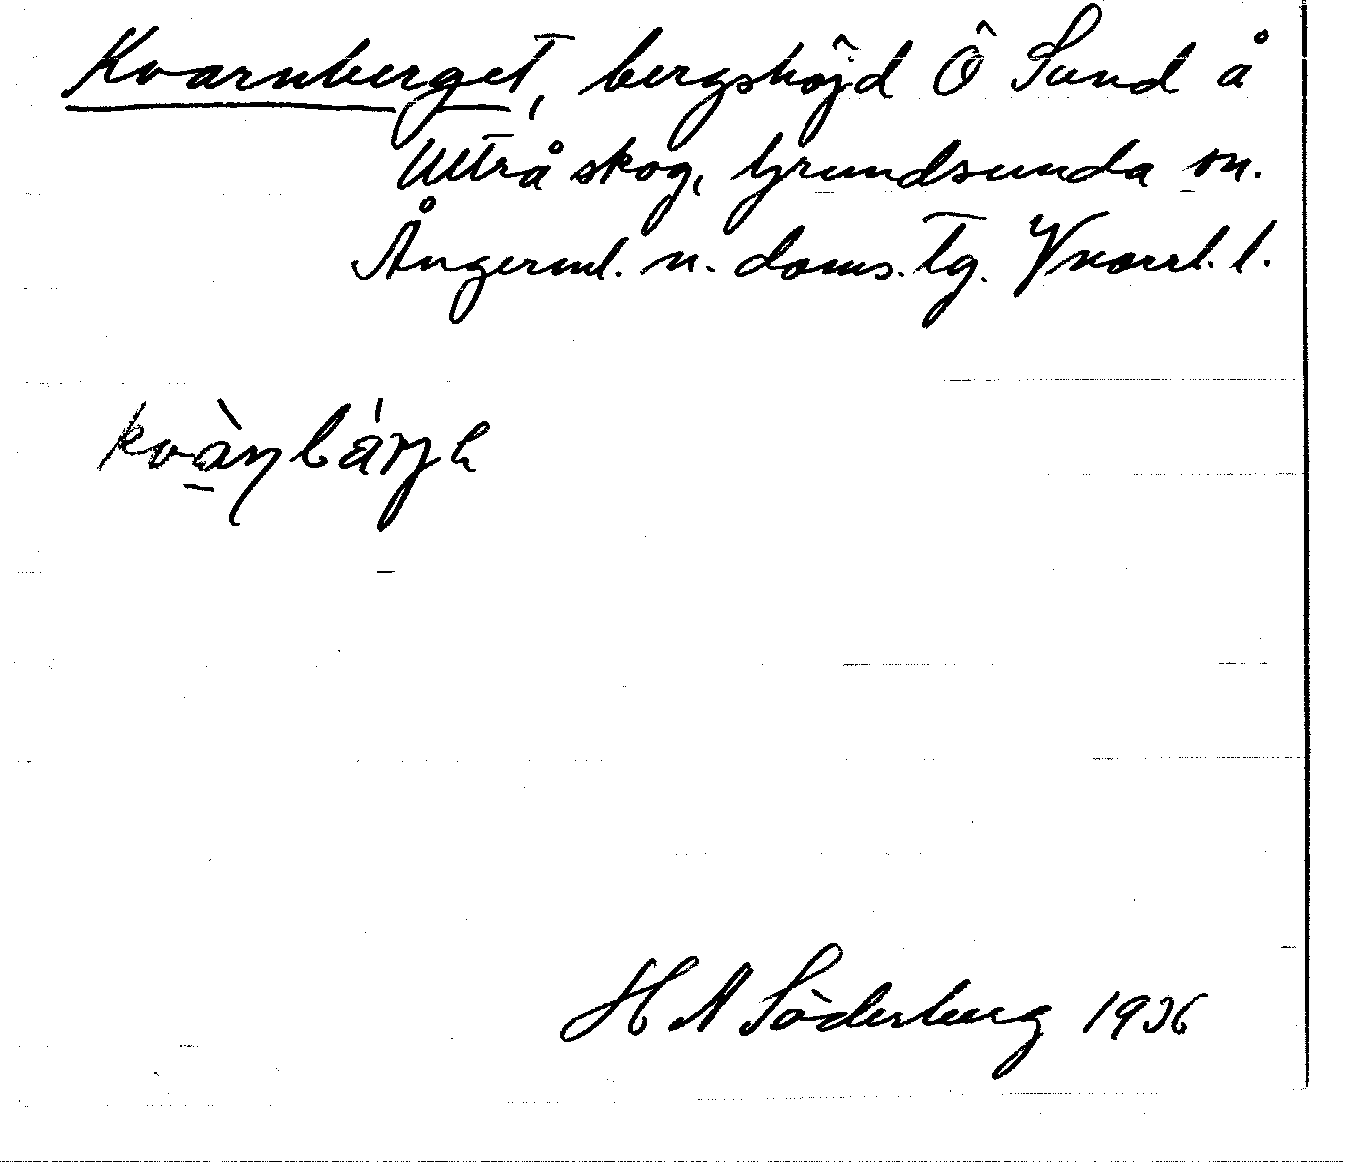 Kvarnberget, bergshöjd Ö Sund å
Utträ skog, Grundsunda sn.
Ångerml. n. doms. tg. Vnorrl. l.
H N Söderberg 1936